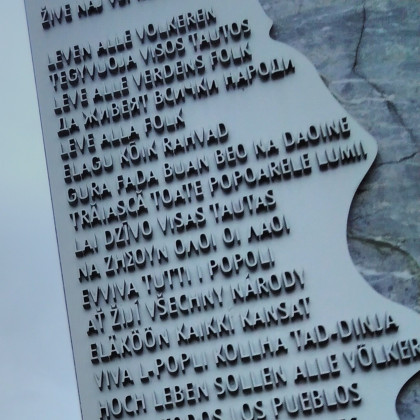 ŽIVE NAJ VSI
LEVEN ALLE VOLKEREN
TEGYVUOJA VISOS TAUTOS
LEVE ALLE VERDENS FOLK
ДА ЖИВЕЯТ ВСИЧКИ НАРОДИ
LEVE ALLA FOLK
ELAGU KÕIK RAHVAD
GURA FADA BUAN BEO NA DAOINE
TRĂIASCĂ TOATE POPOARELE LUMII
LAI DZĪVO VISAS TAUTAS
ΝΑ ΖΗΣΟΥΝ ΟΛΟΙ ΟΙ ΛΑΟΙ
EVVIVA TUTTI I POPOLI
AŤ ŽIJÍ VŠECHNY NÁRODY
ELÄKÖÖN KAIKKI KANSAT
VIVA L-POPLI KOLLHA TAD-DINJA
HOCH LEBEN SOLLEN ALLE VÖLKER
LOS PUEBLOS